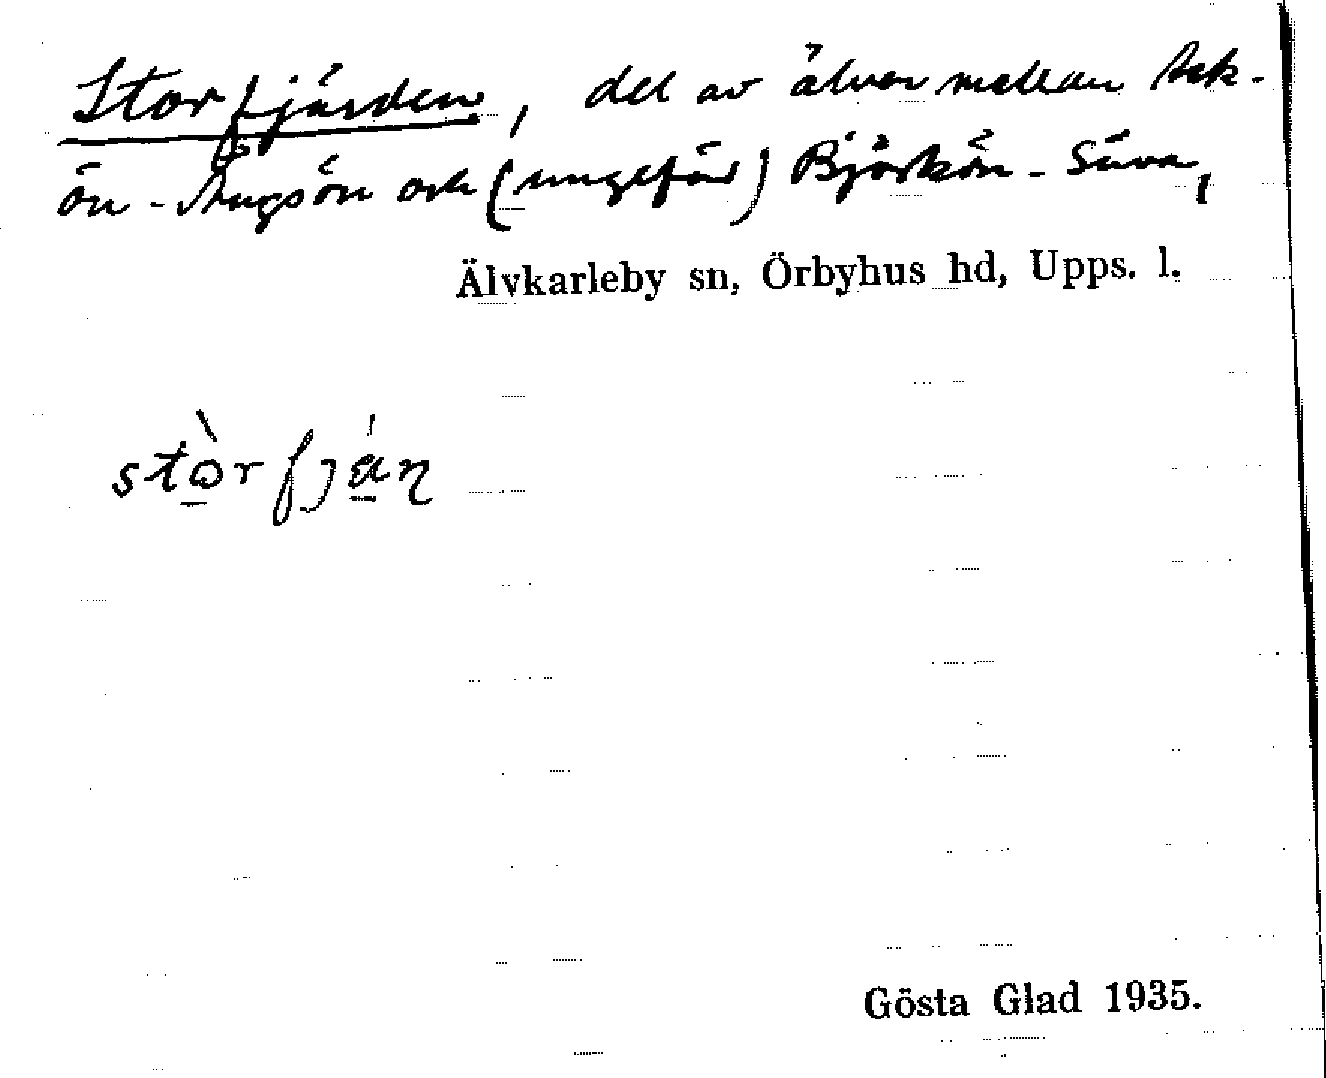 Storfjärden, del av älven mellan
ön - och (ungefär) Björkön - Säva,
Älvkarleby sn, Örbyhus hd, Upps. l.
Gösta Glad 1935.